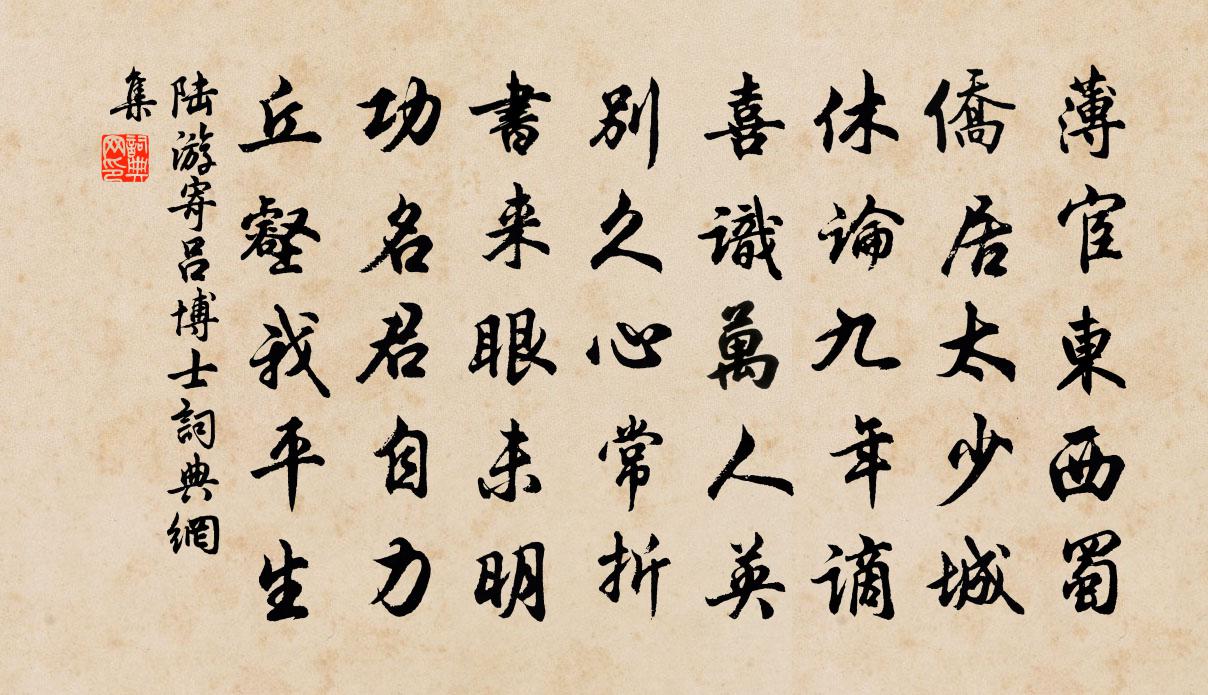 薄宦東西蜀
僑居太少城
休論九年謫
喜識萬人英
別久心常折
書来眼未明
功名君自力
丘壑我平生
陆游寄呂博士詞典網
集
詞典
网印